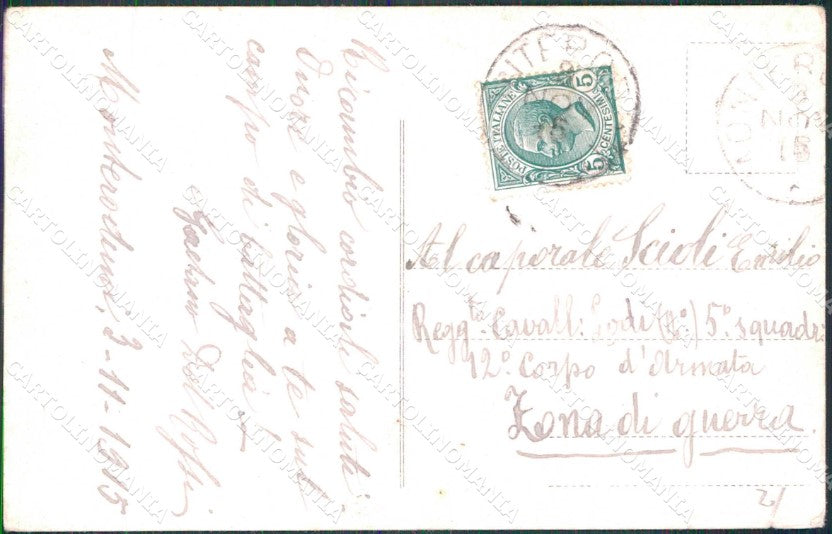 Ricambio cordiali saluti
Onore e gloria a te sul
campo di battaglia!
Gaetano
Monteroduni, 3-11-1915
POSTE ITALIANE
5 CENTESIMI 5
Al caporale Scioli Emilio
Regg.to Cavall: Lodi (2°) 5° squadr
12° Corpo d'Armata
Zona di guerra
2/
CARTOLINOMANIA